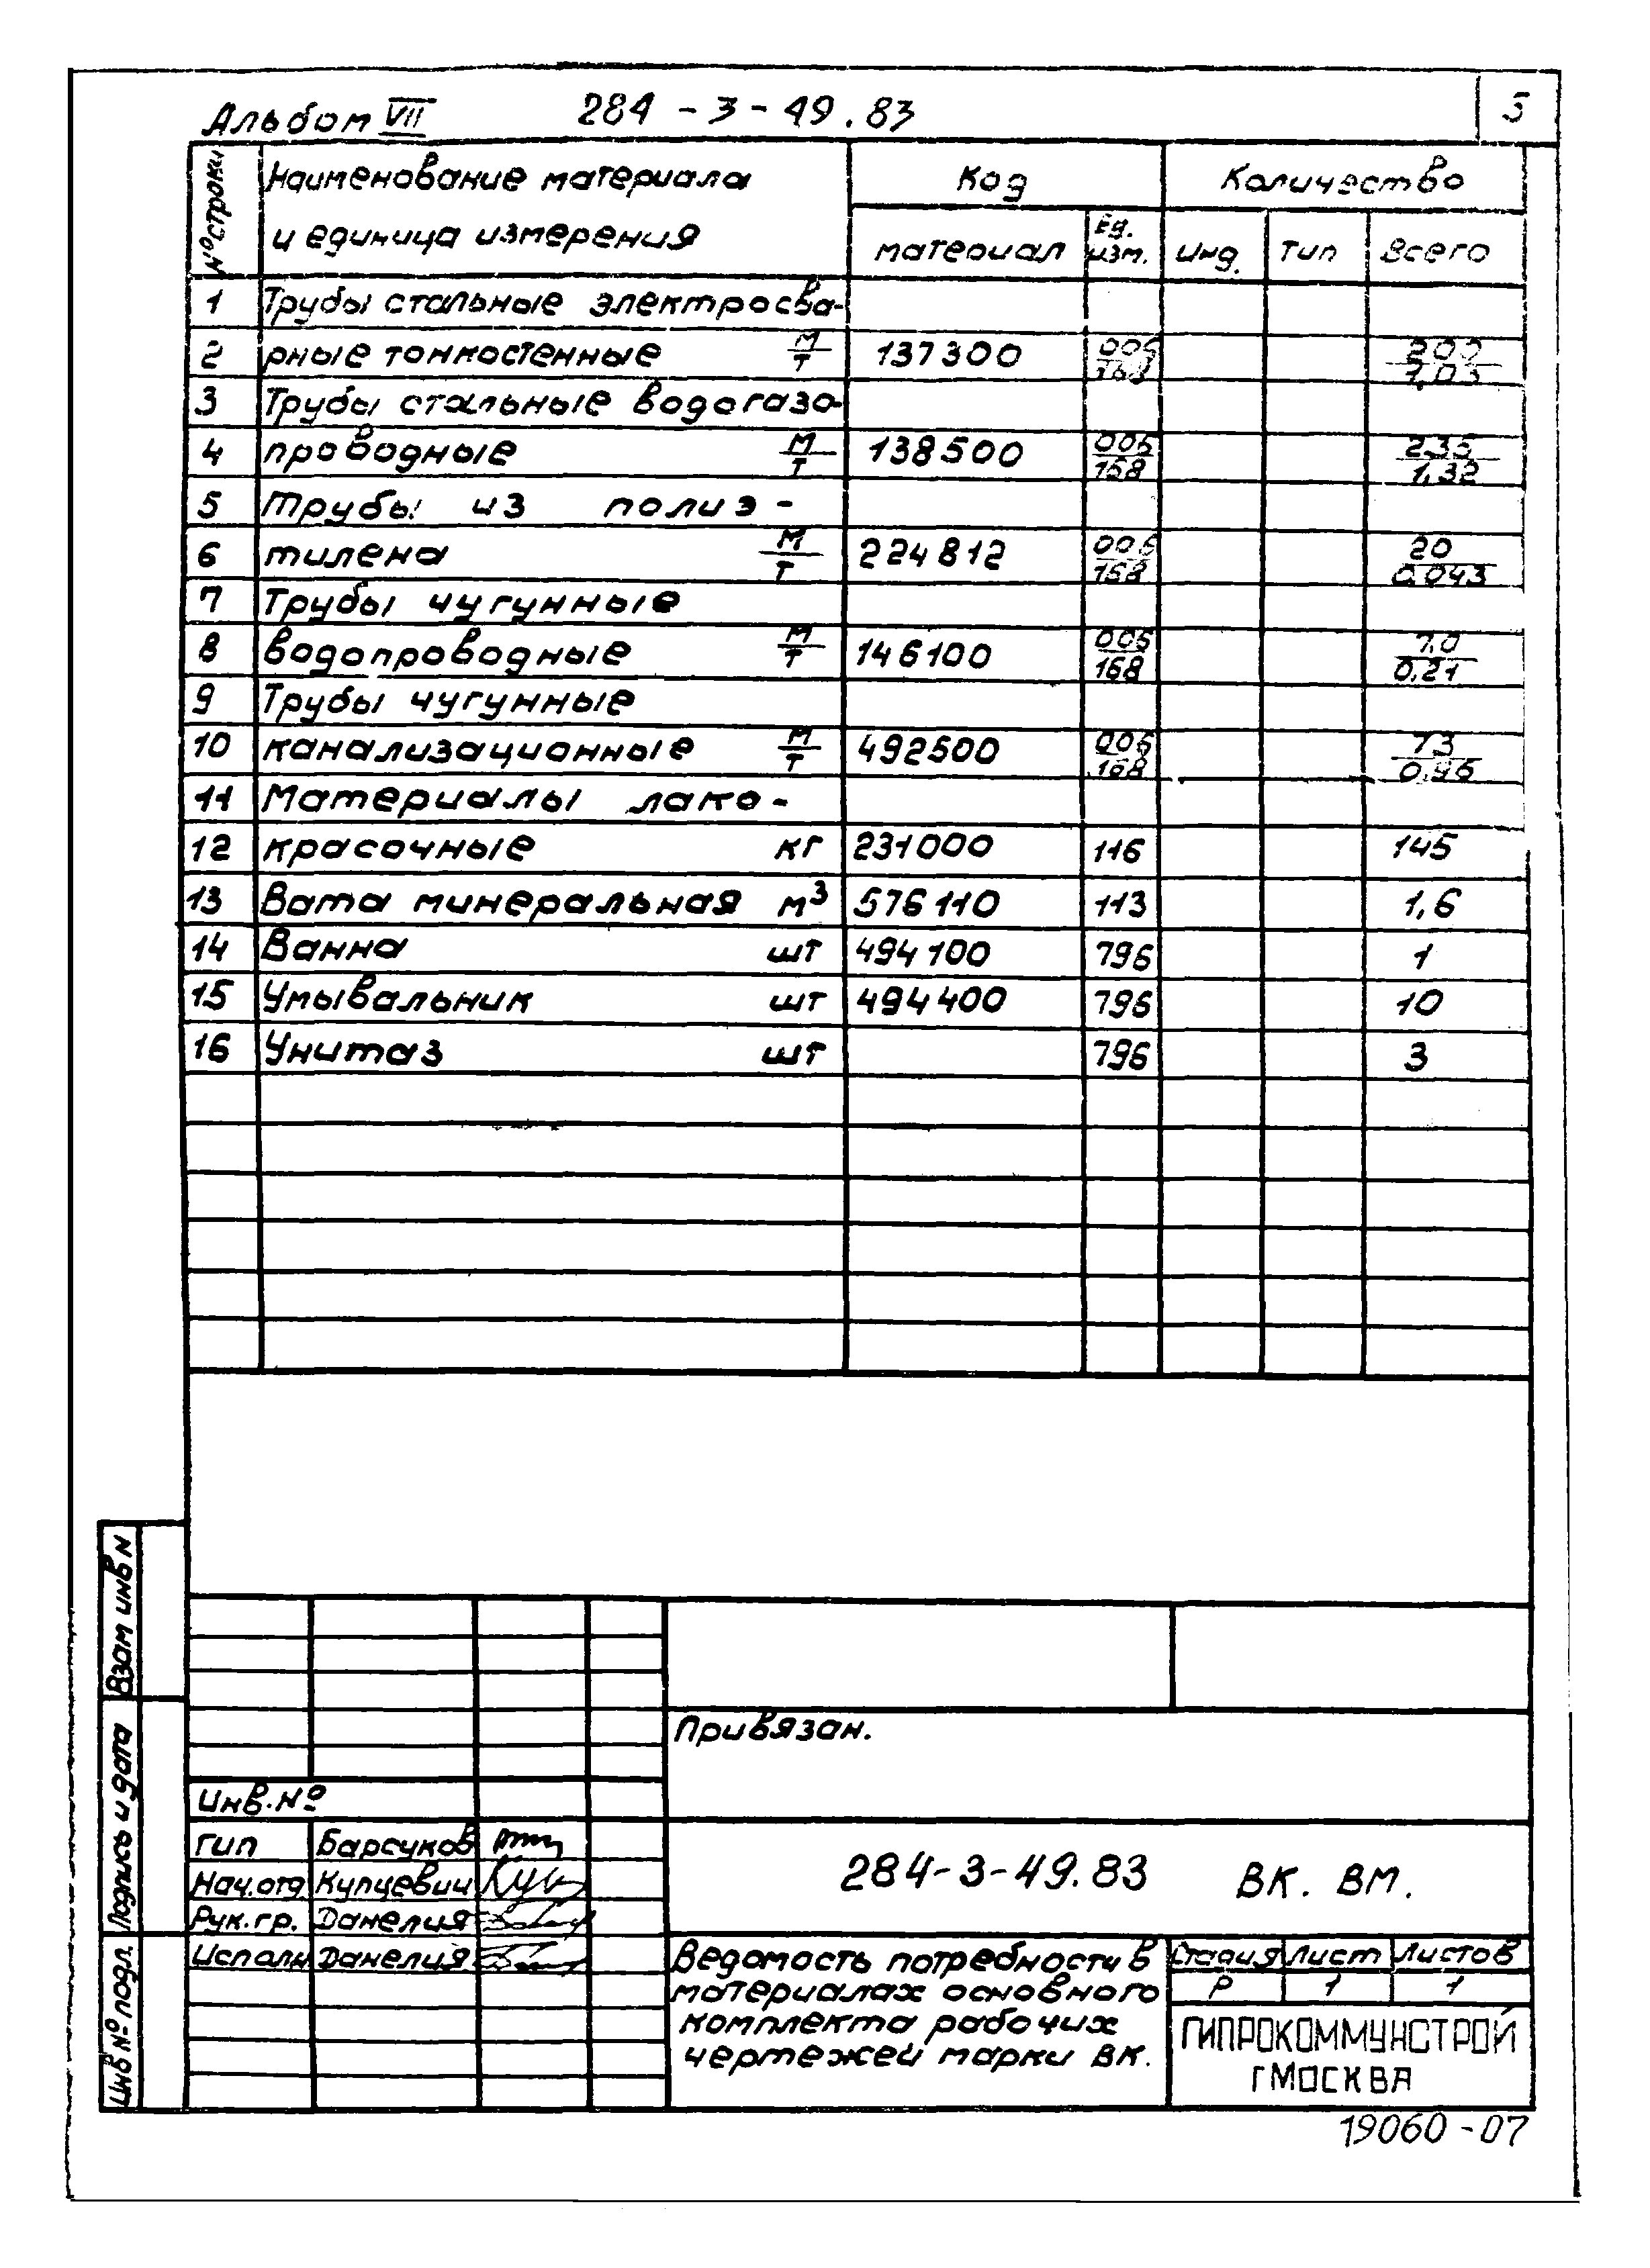 Альбом VII 284-3-49.83 5
№ строки Наименование материала и единица измерения Код Количество
материал Ед. изм. Инд. Тип Всего
1 Трубы стальные электросва-
2 рные тонкостенные м/т 137300 006/168 200/1,03
3 Трубы стальные водогазо-
4 проводные м/т 138500 006/168 235/1,32
5 Трубы из полиэ-
6 тилена м/т 224812 006/168 20/0,043
7 Трубы чугунные
8 водопроводные м/т 146100 006/168 7,0/0,21
9 Трубы чугунные
10 канализационные м/т 492500 006/168 73/0,96
11 Материалы лако-
12 красочные кг 231000 116 145
13 Вата минеральная м³ 576110 113 1,6
14 Ванна шт 494100 796 1
15 Умывальник шт 494400 796 10
16 Унитаз шт 796 3
Взам инв N
Подпись и дата
Инв № подл.
Привязан.
Инв. №
ГИП Барсуков
Нач.отд Купцевич
Рук.гр. Данелия
Исполн Данелия
284-3-49.83 ВК. ВМ.
Ведомость потребности в
материалах основного
комплекта рабочих
чертежей марки ВК.
Стадия Лист Листов
Р 1 1
ГИПРОКОММУНСТРОЙ
г МОСКВА
19060-07